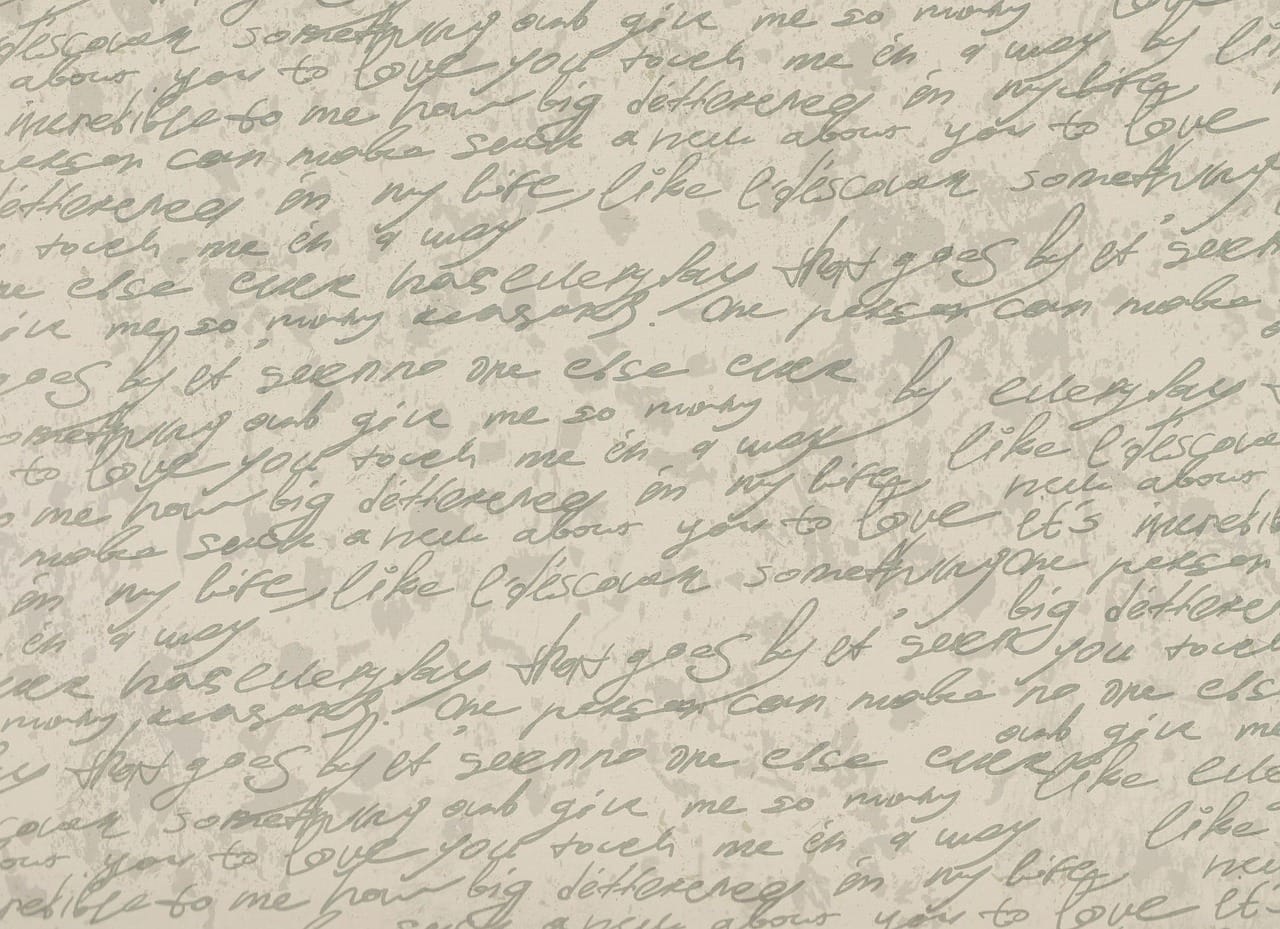 give me so many love
discover something and give me so many
about you to love you touch me in a way by li
incredible to me how big difference in my life
person can make such a new about you to love
difference in my life, like I discover something
touch me in a way
else ever has every day that goes by it seem
give me, so many reasons. One person can make
goes by it seem no one else ever by every day
something and give me so many
to love you touch me in a way like I discover
me how big difference in my life new about
make such a new about you to love it's incredible
in my life, like I discover something One person
in a way big difference
ever has every day that goes by it seem you touch
many, reasons. One person can make no one else
and give me
that goes by it seem no one else ever like eve
discover something and give me so many
you to love you touch me in a way like
incredible to me how big difference in my life
such a new about you to love it's